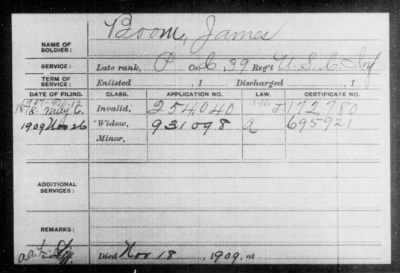 Boom, James
NAME OF SOLDIER:
SERVICE: Late rank, P Co. C, 39 Reg't U.S.C. Inf
TERM OF SERVICE: Enlisted , 1 Discharged , 1
DATE OF FILING. CLASS. APPLICATION NO. LAW. CERTIFICATE NO.
May 6, Invalid, 254,040 172780
1909 Nov 26 Widow, 931098 a 695921
Minor,
ADDITIONAL SERVICES:
REMARKS:
Died Nov 18, 1909, at